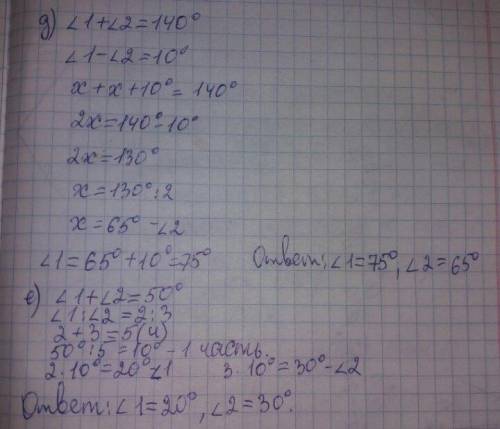 д) ∠1+∠2=140°
∠1-∠2=10°
x+x+10°=140°
2x=140°-10°
2x=130°
x=130°:2
x=65° -∠2
∠1=65°+10°=75° Ответ: ∠1=75°, ∠2=65°
е) ∠1+∠2=50°
∠1:∠2=2:3
2+3=5(ч)
50°:5=10°-1 часть.
2·10°=20° ∠1 3·10°=30°-∠2
Ответ: ∠1=20°, ∠2=30°.